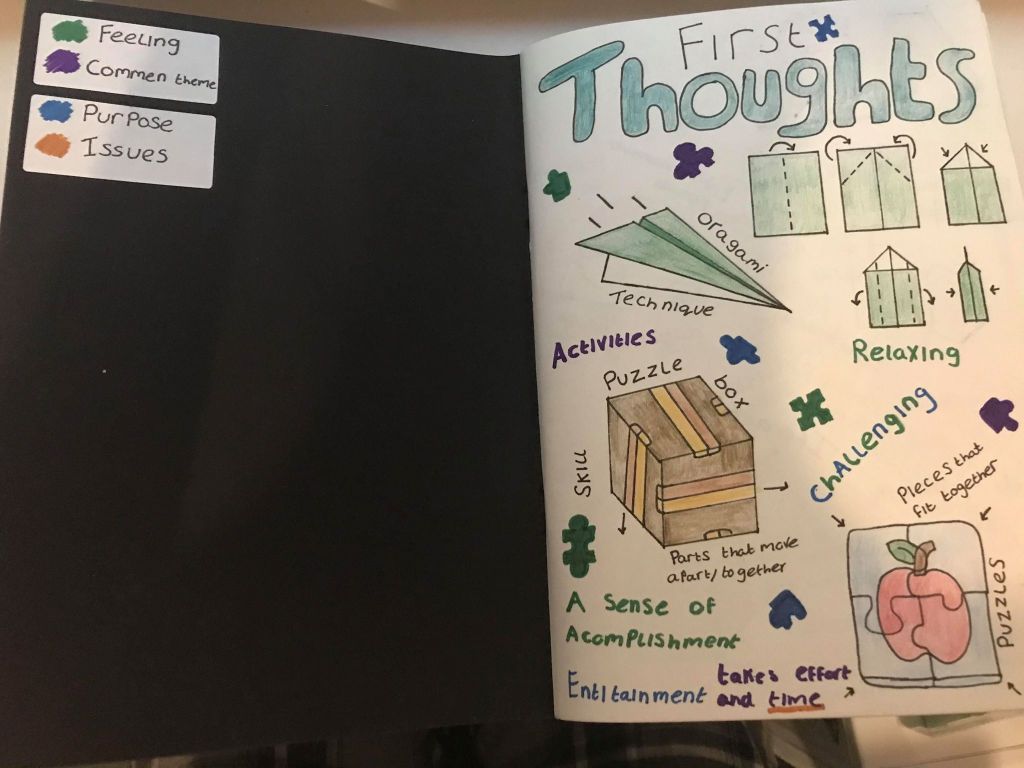 Feeling
Commen theme
Purpose
Issues
First
Thoughts
Oragami
Technique
Relaxing
Activities
Puzzle box
Skill
Parts that move
apart/together
Challenging
Pieces that
fit together
Puzzles
A sense of
Acomplishment
Entitainment
takes effort
and time